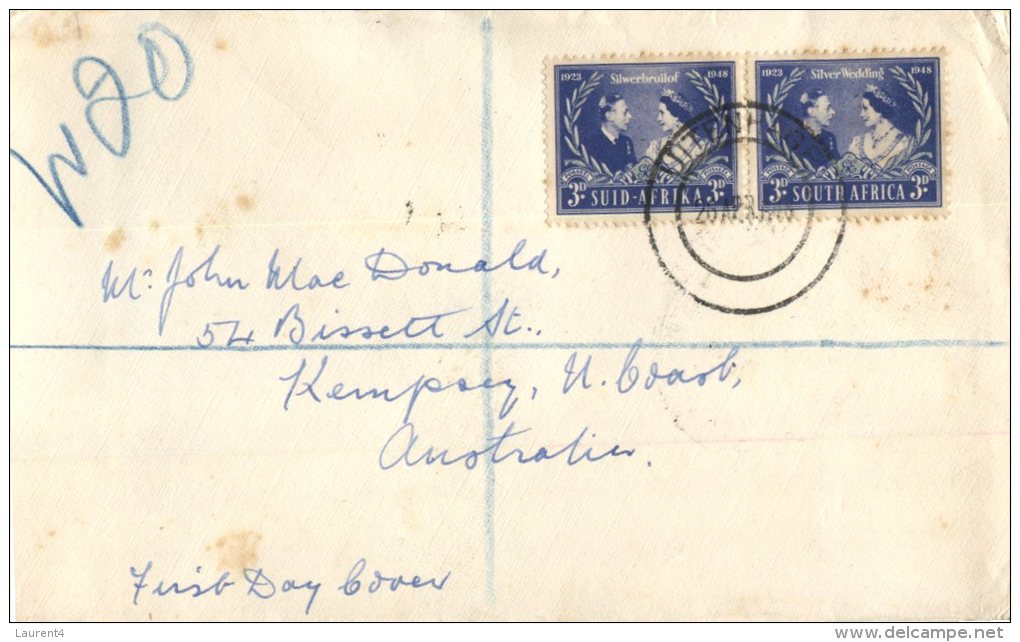 W20
1923 Silwerbruilof 1948
POSSEËL POSSEËL
3D SUID-AFRIKA 3D
1923 Silver Wedding 1948
POSTAGE POSTAGE
3D SOUTH AFRICA 3D
UITENHAGE
26 APR
Mr. John Mac Donald,
54 Bissett St.,
Kempsey, N. Coast,
Australia.
First Day Cover
Laurent4
www.delcampe.net